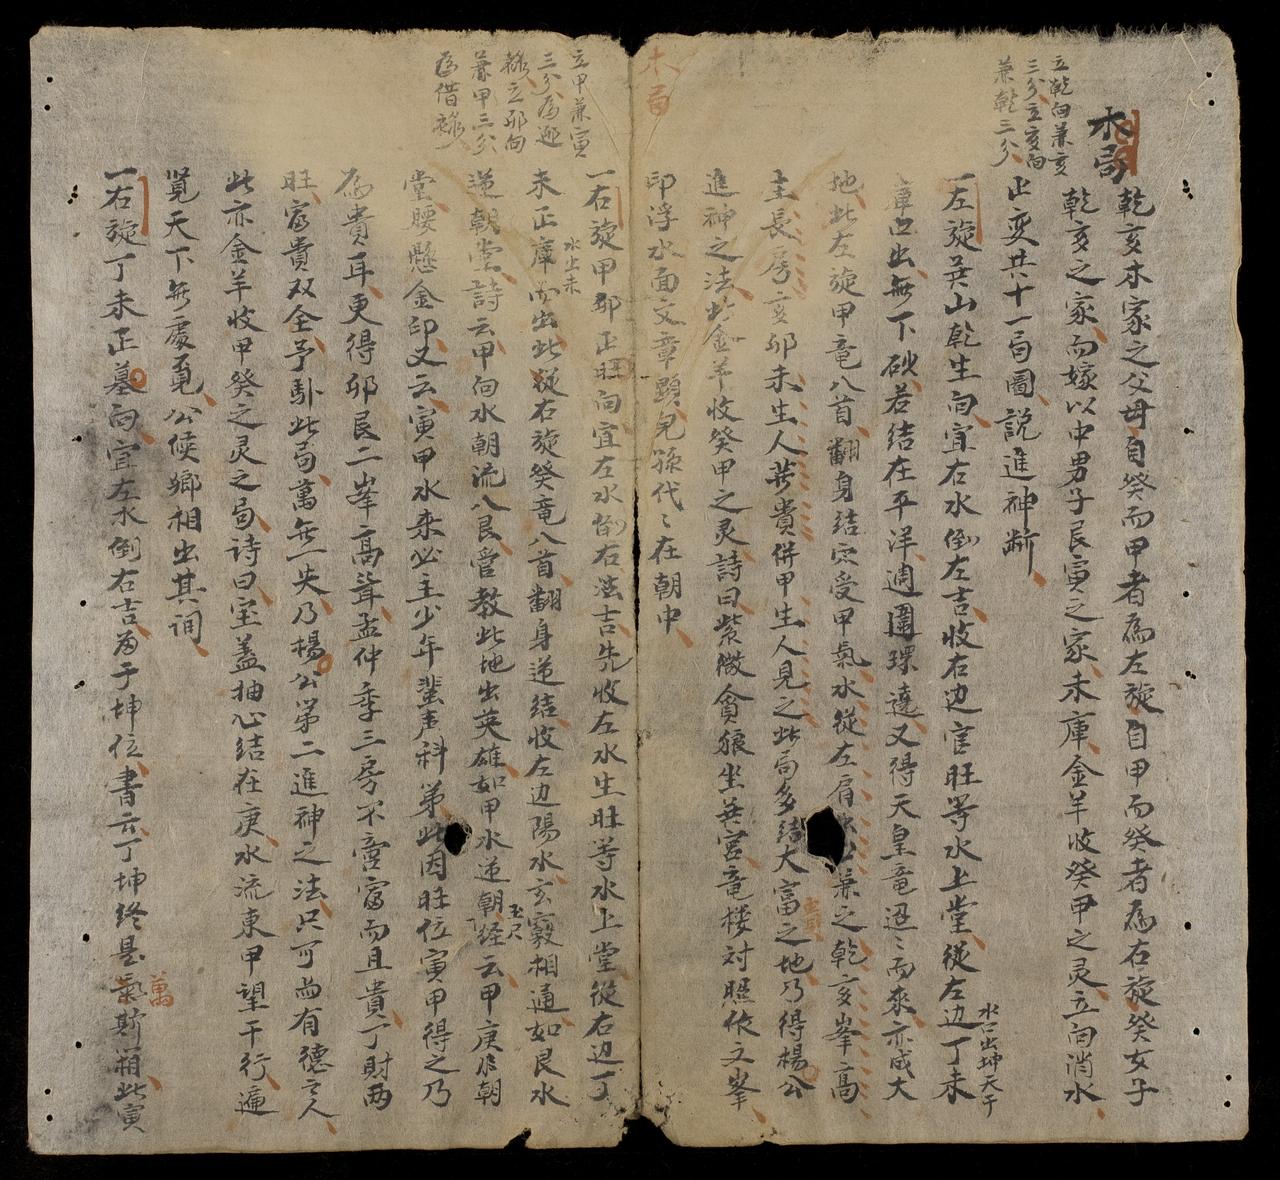 立乾向兼亥
三分立亥向
兼乾三分
木局
乾亥木家之父母自癸而甲者為左旋自甲而癸者為右旋癸女子
乾亥之家而嫁以中男子艮寅之家未庫金羊收癸甲之灵立向消水
止变共十一局圖説進神断
一左旋巽山乾生向宜右水倒左吉收右边官旺等水上堂從左边丁未
水口出坤天干
庫口出無下砂若结在平洋週圍環遶又得天皇竜迢〻而來亦成大
地此左旋甲竜八首翻身结穴受甲氣水從左肩出兼之乾亥峯高
主長房亥卯未生人發貴併甲生人見之此局多结大富貴之地乃得楊公
進神之法此金羊收癸甲之灵詩曰紫微貪狼坐巽宮竜楼对照依文峯
印浮水面文章顕兒孫代〻在朝中
木局
立甲兼寅
三分為迎
禄立卯向
兼甲三分
為借禄
一右旋甲卯正旺向宜左水倒右法吉先收左水生旺等水上堂從右边丁
未正庫而出此從右旋癸竜八首翻身逆结收左边陽水玄竅相通如艮水
水出未
逆朝堂詩云甲向水朝流八艮管教此地出英雄如甲水逆朝玉尺經云甲庚水朝
堂腰懸金印又云寅甲水來必主少年蜚声科第此因旺位寅甲得之乃
為貴耳更得卯艮二峯高聳孟仲季三房不啻富而且貴丁財两
旺富貴双全予卧此局萬無一失乃楊公第二進神之法只可留有德之人
此亦金羊收甲癸之灵之局诗曰宝盖抽心结在庚水流東甲望干行遍
覓天下無處覔公侯鄉相出其间
一右旋丁未正墓向宜左水倒右吉為于坤位書云丁坤终是萬斯箱此寅